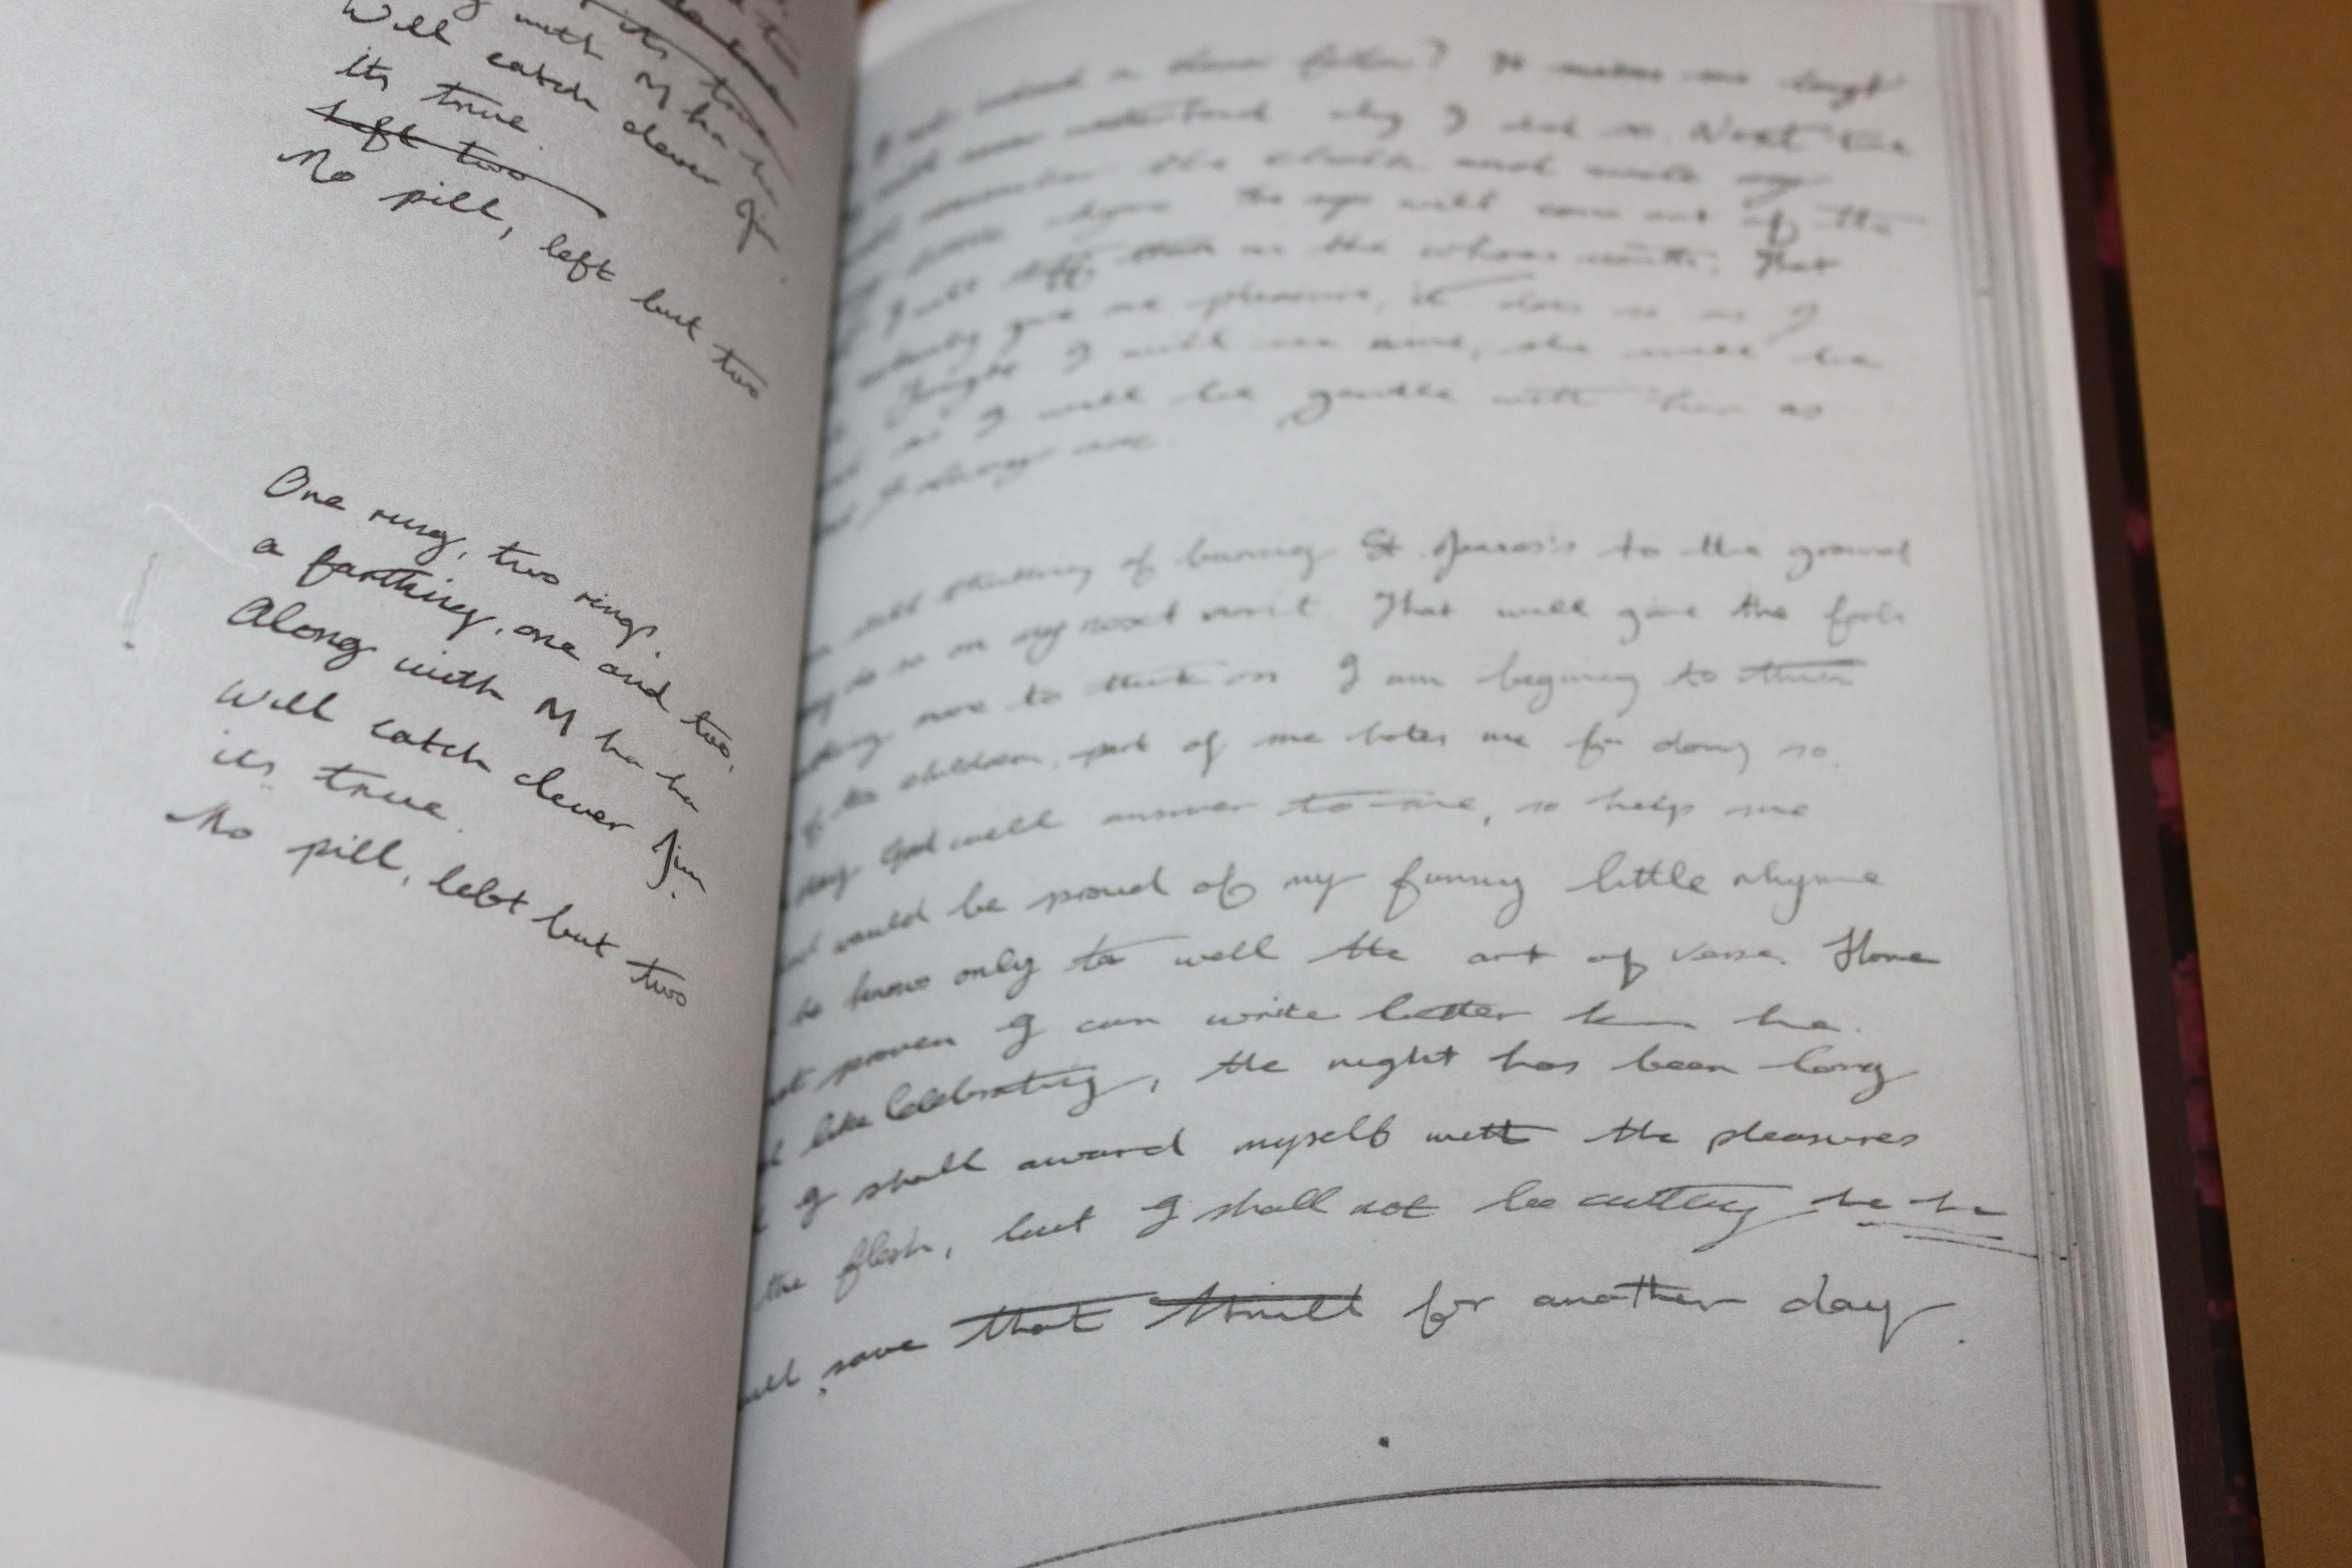 with M ha h
Will catch clever Jim
its true
left two
No pill, left but two
One ring, two rings,
a farthing, one and two,
Along with M ha ha
Will catch clever Jim
its true.
No pill, left but two
clever father? It makes me laugh
understand why I did so. Next time
remember the chalk and write my
rhyme The eyes will come out of the
I will stuff them in the whores mouth. That
certainly give me pleasure, it does so as I
Tonight I will see mine, she will be
as I will be gentle with her as
I always am
still thinking of burning St. James's to the ground
do so on my next visit. That will give the fools
more to think on I am begining to think
of the children, part of me hates me for doing so.
day God will answer to me, so help me
would be proud of my funny little rhyme
he knows only to well the art of verse. Have
not proven I can write better than he.
like celebrating, the night has been long
I shall award myself with the pleasures
the flesh, but I shall not be cutting ha ha
will save that thrill for another day.